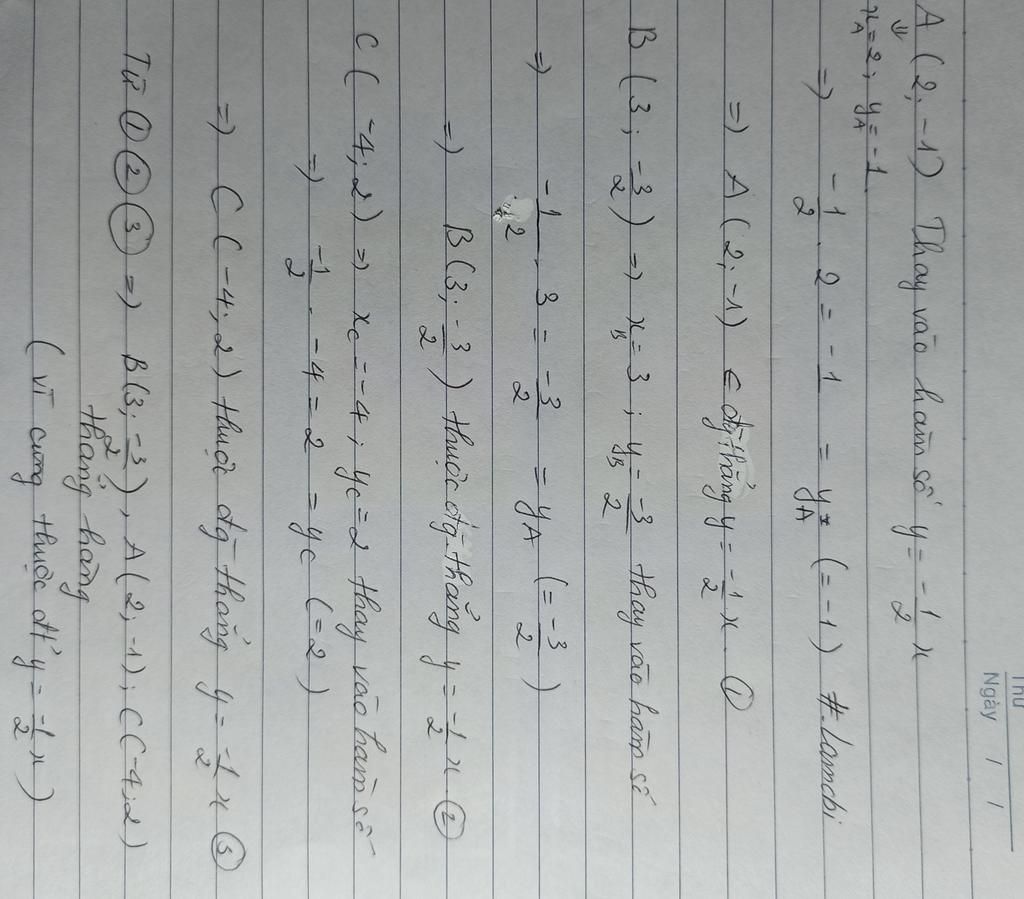 Thứ
Ngày / /
A (2; -1) Thay vào hàm số y = -1/2 x
⇓
x_A = 2; y_A = -1
=> -1/2 . 2 = -1 = y_A (= -1) #.Lamdbi
=> A (2; -1) ∈ đg thẳng y = -1/2 x. ①
B (3; -3/2) => x_B = 3; y_B = -3/2 thay vào hàm số
=> -1/2 . 3 = -3/2 = y_A (= -3/2)
=> B(3; -3/2) thuộc đg thẳng y = -1/2 x ②
C (-4; 2) => x_C = -4; y_C = 2 thay vào hàm số
=> -1/2 . -4 = 2 = y_C (= 2)
=> C (-4; 2) thuộc đg thẳng y = -1/2 x ③
Từ ① ② ③ => B(3; -3/2), A(2; -1); C(-4; 2)
thẳng hàng
(vì cùng thuộc đt y = -1/2 x)